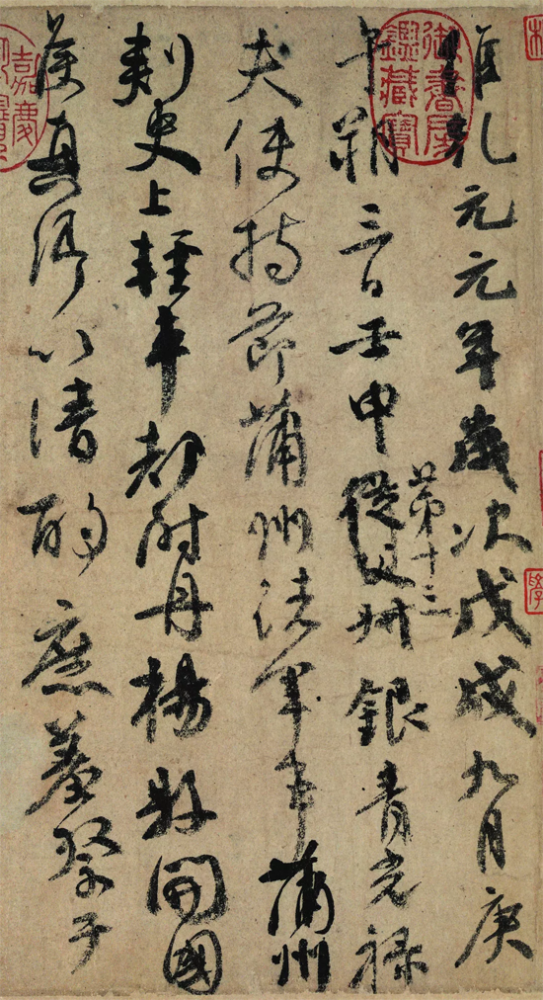 維乾元元年歲次戊戌九月庚
午朔三日壬申從父叔銀青光祿
第十三
夫使持節蒲州諸軍事蒲州
刺史上輕車都尉丹楊縣開國
侯真卿以清酌庶羞祭于
御書房鑑藏寶
嘉慶